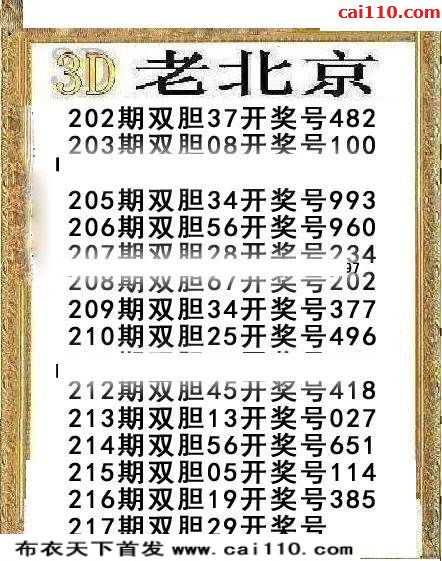 cai110.com
3D 老北京
202期双胆37开奖号482
203期双胆08开奖号100
205期双胆34开奖号993
206期双胆56开奖号960
207期双胆28开奖号234
97
208期双胆67开奖号202
209期双胆34开奖号377
210期双胆25开奖号496
212期双胆45开奖号418
213期双胆13开奖号027
214期双胆56开奖号651
215期双胆05开奖号114
216期双胆19开奖号385
217期双胆29开奖号
布衣天下首发 www.cai110.com